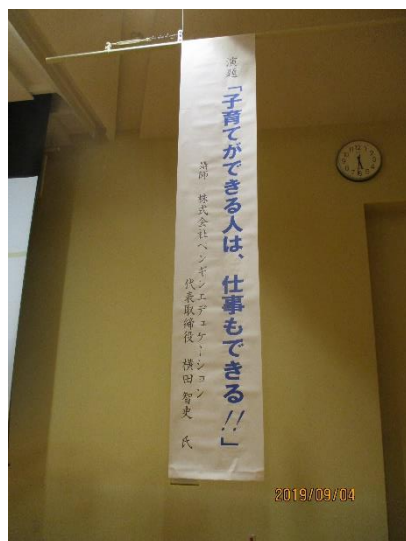 演題 「子育てができる人は、仕事もできる!!」
講師 株式会社ペンギンエデュケーション
代表取締役 横田 智史 氏
2019/09/04